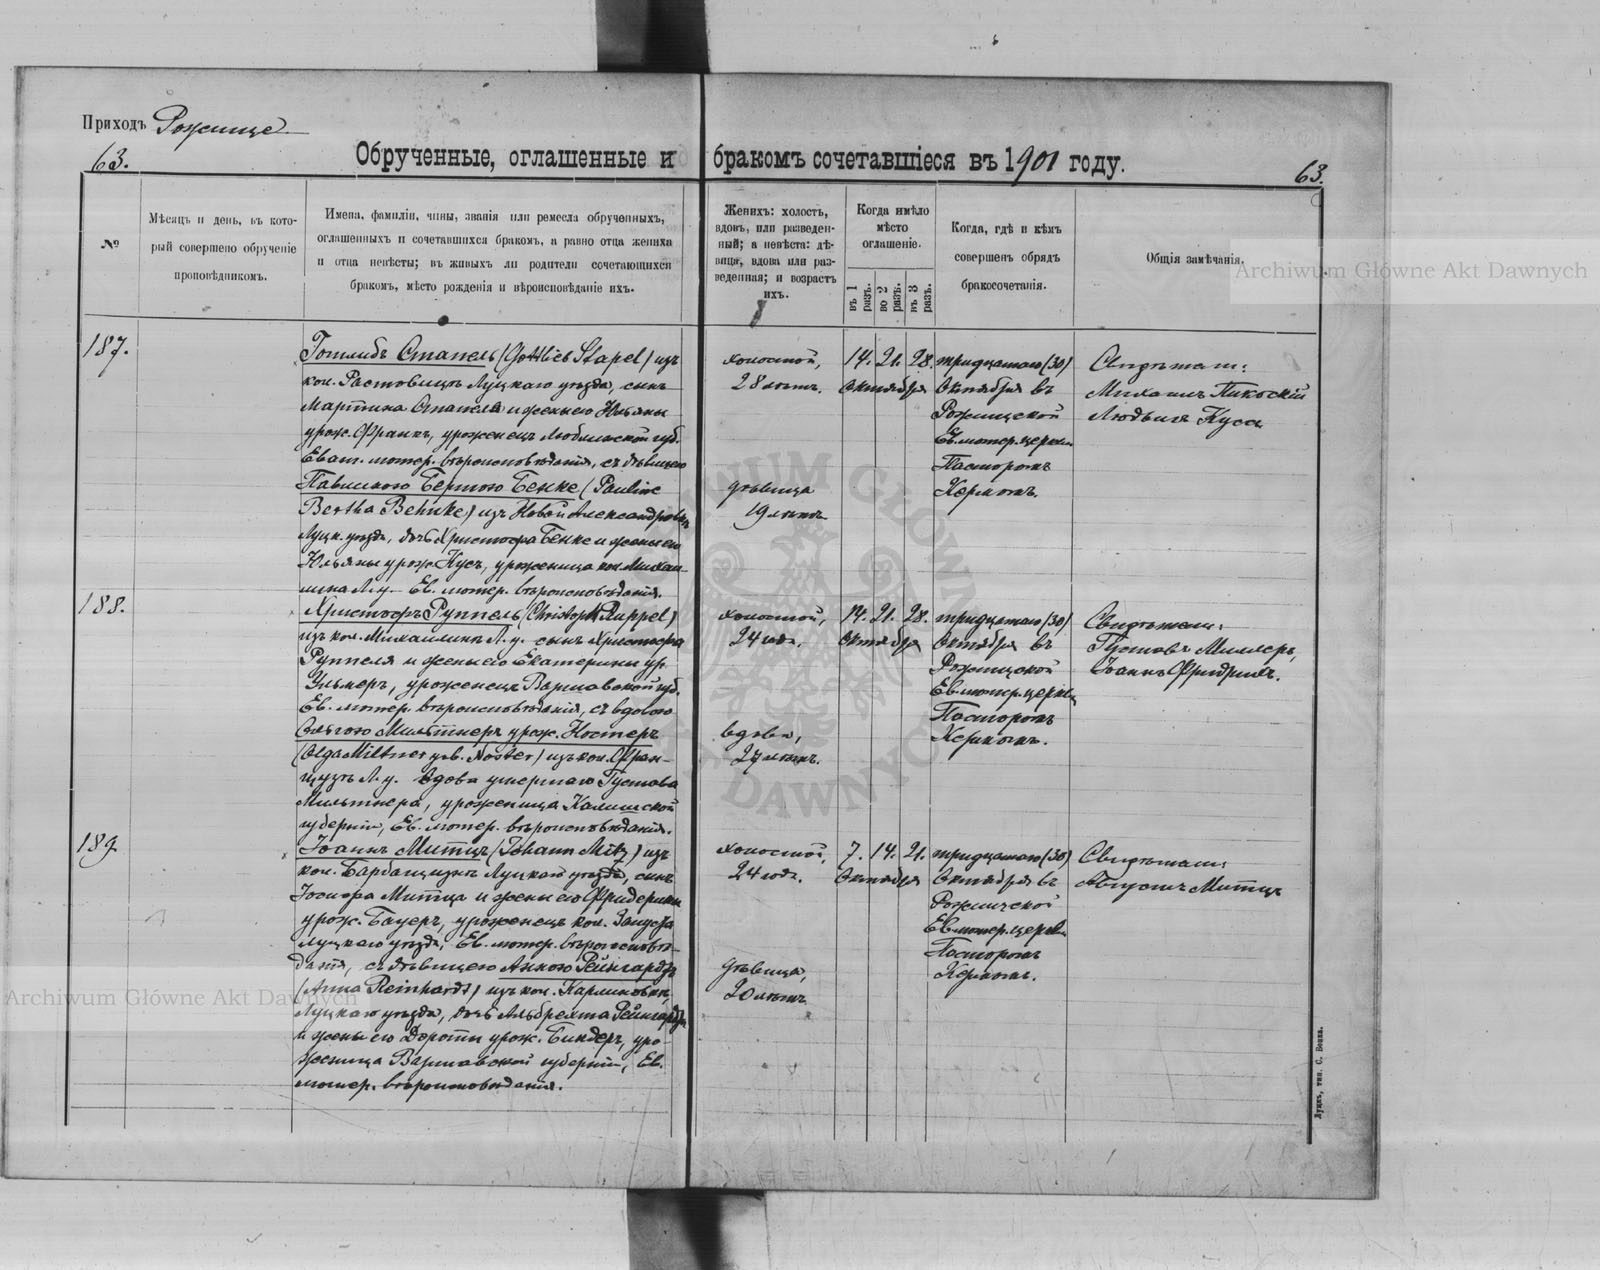 Приходъ Рожище
63.
Обрученные, оглашенные и бракомъ сочетавшіеся въ 1901 году.
63.
№
Мѣсяцъ и день, въ кото-
рый совершено обрученіе
проповѣдникомъ.
Имена, фамиліи, чины, званія или ремесла обрученныхъ,
оглашенныхъ и сочетавшихся бракомъ, а равно отца жениха
и отца невѣсты; въ живыхъ ли родители сочетающихся
бракомъ, мѣсто рожденія и вѣроисповѣданіе ихъ.
Женихъ: холостъ,
вдовъ, или разведен-
ный; а невѣста: дѣ-
вица, вдова или раз-
веденная; и возрастъ
ихъ.
Когда имѣло
мѣсто
оглашеніе.
въ 1 разъ.
во 2 разъ.
въ 3 разъ.
Когда, гдѣ и кѣмъ
совершенъ обрядъ
бракосочетанія.
Общія замѣчанія.
Archiwum Główne Akt Dawnych
187.
Готлибъ Стапель (Gottlieb Stapel) изъ
кол. Растовицъ Луцкаго уѣзда, сынъ
Мартина Стапеля и жены его Юльяны
урож. Франкъ, уроженецъ Люблинской губ.
Еванг. лютер. вѣроисповѣданія, съ дѣвицею
Павлиною Бертою Бенке (Pauline
Bertha Behnke) изъ Новой Александровки
Луцк. уѣзда, дочь Христофа Бенке и жены его
Юльяны урож. Кусъ, уроженица кол. Михай-
лина Л. у. Ев. лютер. вѣроисповѣданія.
холостой,
28 лѣтъ.
дѣвица
19 лѣтъ
14. 21. 28.
Октября
тридцатаго (30)
Октября въ
Рожищской
Ев. лютер. церкви
Пасторомъ
Кермомъ.
Свидѣтели:
Михаилъ Пикоскій
Людвигъ Кусъ
188.
Христофъ Руппель (Christoph Ruppel)
изъ кол. Михайлинъ Л. у. сынъ Христофа
Руппеля и жены его Екатерины ур.
Ульмеръ, уроженецъ Варшавской губ.
Ев. лютер. вѣроисповѣданія, съ вдовою
Ольгою Мильтнеръ урож. Ностеръ
(Olga Miltner geb. Noster) изъ кол. Фран-
цузъ Л. у. вдова умершаго Густава
Мильтнера, уроженица Калишской
губерніи, Ев. лютер. вѣроисповѣданія.
холостой,
24 года.
вдова,
27 лѣтъ.
14. 21. 28.
Октября
тридцатаго (30)
Октября въ
Рожищской
Ев. лютер. церкви
Пасторомъ
Кермомъ.
Свидѣтели:
Густавъ Миллеръ,
Іоаннъ Фридрихъ.
189
Іоаннъ Митцъ (Johann Mitz) изъ
кол. Барбащизнъ Луцкаго уѣзда, сынъ
Іосифа Митца и жены его Фридерики
урож. Бауеръ, уроженецъ кол. Запуста
Луцкаго уѣзда, Ев. лютер. вѣроисповѣ-
данія, съ дѣвицею Анною Рейнгардтъ
(Anna Reinhardt) изъ кол. Карлиновки,
Луцкаго уѣзда, дочь Альбрехта Рейнгардта
и жены его Дороты урож. Биндеръ, уро-
женица Варшавской губерніи, Ев.
лютер. вѣроисповѣданія.
холостой,
24 года.
дѣвица,
20 лѣтъ
7. 14. 21.
Октября
тридцатаго (30)
Октября въ
Рожищской
Ев. лютер. церкви
Пасторомъ
Кермомъ.
Свидѣтели:
Августъ Митцъ
Archiwum Główne Akt Dawnych
ARCHIWUM GŁÓWNE AKT DAWNYCH
Луцкъ, тип. С. Бонка.